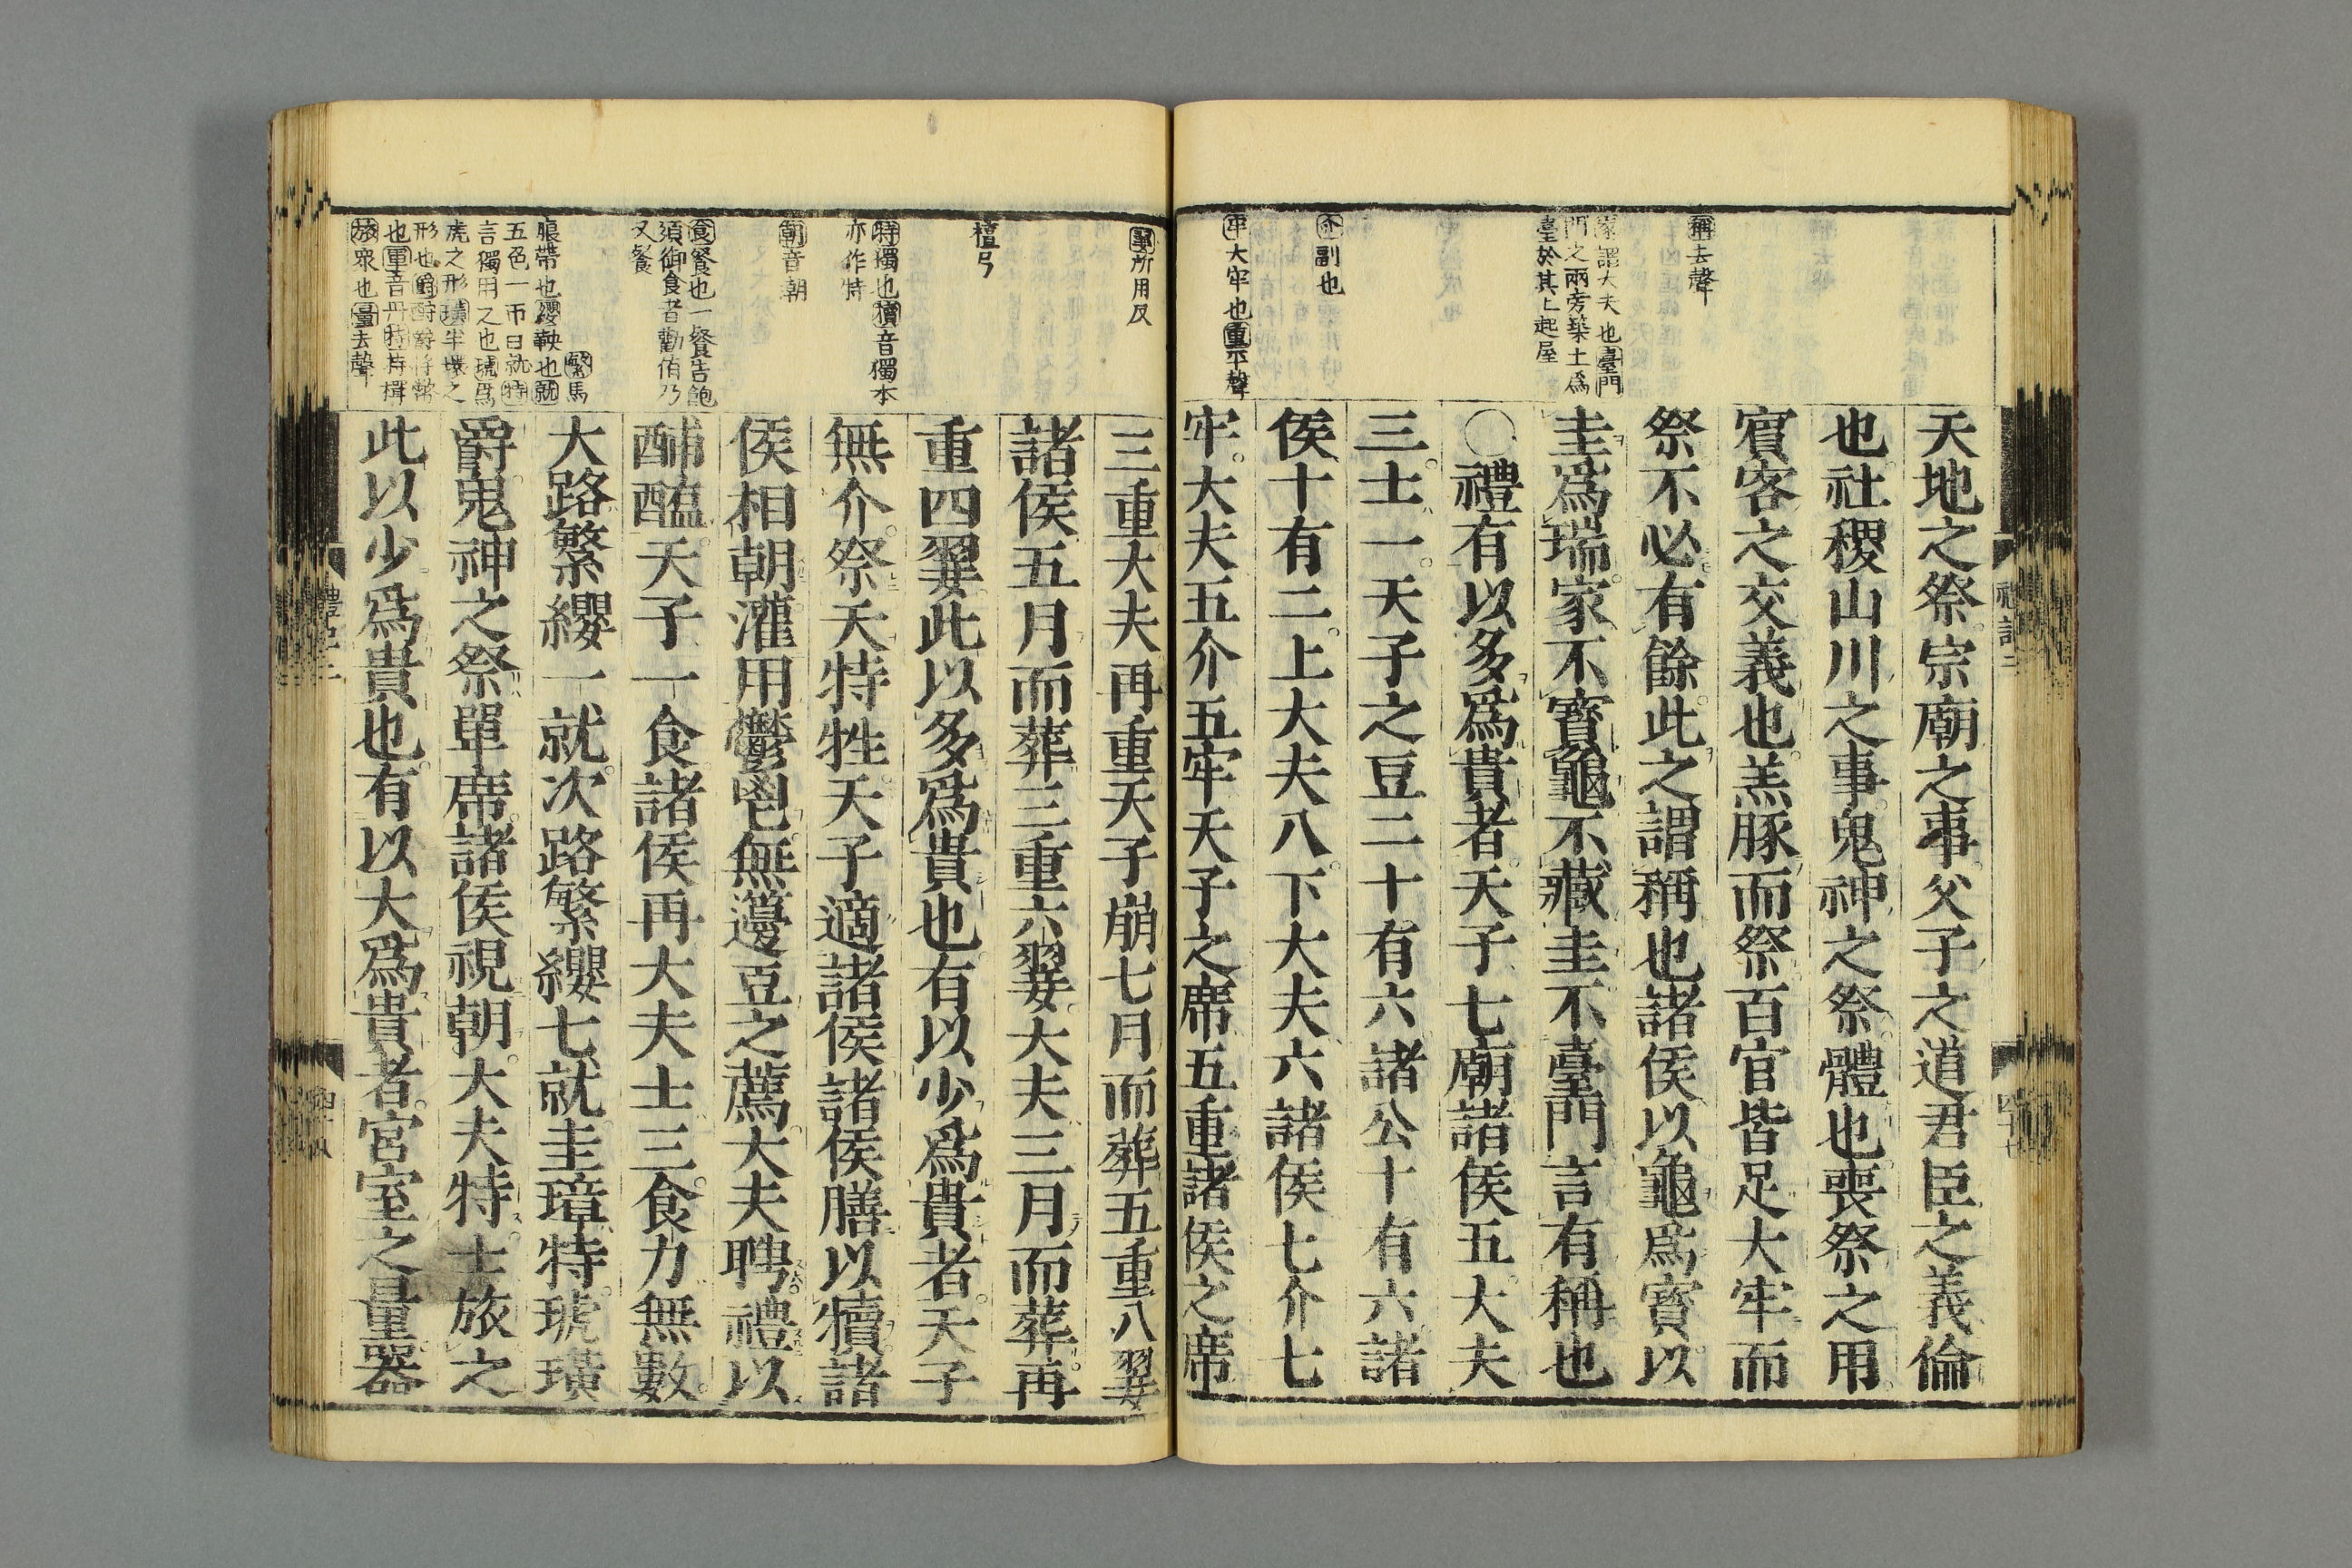 稱去聲
家謂大夫也臺門
門之兩旁築土爲
臺於其上起屋
介副也
牢大牢也重平聲
天地之祭宗廟之事父子之道君臣之義倫
也社稷山川之事鬼神之祭體也喪祭之用
賓客之交義也羔豚而祭百官皆足大牢而
祭不必有餘此之謂稱也諸侯以龜爲寶以
圭爲瑞家不寶龜不藏圭不臺門言有稱也
○禮有以多爲貴者天子七廟諸侯五大夫
三士一天子之豆二十有六諸公十有六諸
侯十有二上大夫八下大夫六諸侯七介七
牢大夫五介五牢天子之席五重諸侯之席
禮記二
翣所用反
檀弓
特獨也犢音獨本
亦作特
朝音潮
食餐也一餐告飽
須御食者勸侑乃
又餐
繁馬
腹帶也纓鞅也就
五色一帀曰就特
言獨用之也琥爲
虎之形璜半環之
形也爵酬爵將幣
也單音丹特特揖
旅衆也量去聲
三重大夫再重天子崩七月而葬五重八翣
諸侯五月而葬三重六翣大夫三月而葬再
重四翣此以多爲貴也有以少爲貴者天子
無介祭天特牲天子適諸侯諸侯膳以犢諸
侯相朝灌用鬱鬯無籩豆之薦大夫聘禮以
酺醢天子一食諸侯再大夫士三食力無數
大路繁纓一就次路繁纓七就圭璋特琥璜
爵鬼神之祭單席諸侯視朝大夫特士旅之
此以少爲貴也有以大爲貴者宮室之量器
禮記二